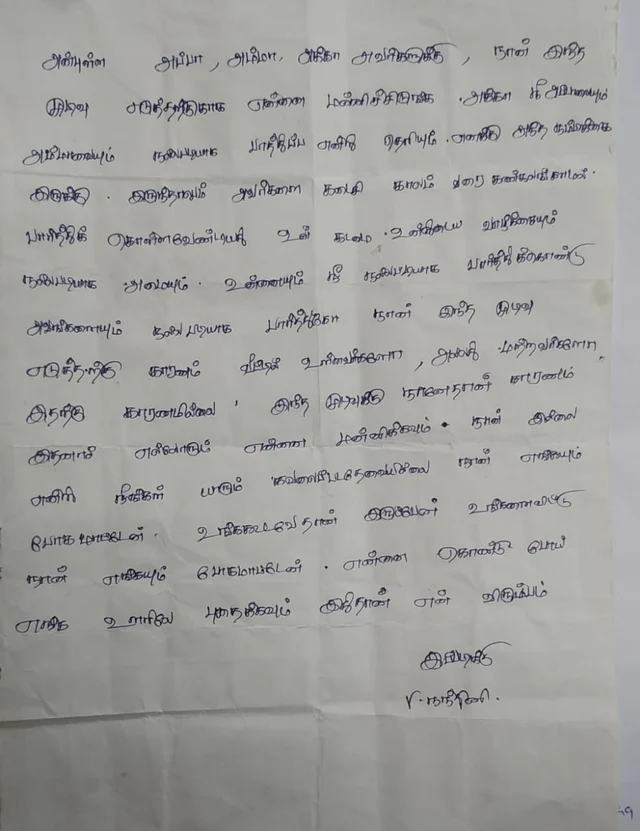 அன்புள்ள அப்பா, அம்மா, அக்கா அவர்களுக்கு, நான் இந்த
முடிவு எடுத்ததற்காக என்னை மன்னிச்சிருங்க. அக்கா நீ அப்பாவையும்
அம்மாவையும் நல்லபடியாக பார்த்துப்ப எனக்கு தெரியும். எனக்கு அந்த நம்பிக்கை
இருக்கு. இருந்தாலும் அவர்களை கடைசி காலம் வரை கண்கலங்காமல்
பார்த்துக் கொள்ளவேண்டியது உன் கடமை. உன்னுடைய வாழ்க்கையும்
நல்லபடியாக அமையும். உன்னையும் நீ நல்லபடியாக பார்த்துக்கொண்டு
அவங்களையும் நல்லபடியாக பார்த்துக்கோ நான் இந்த முடிவு
எடுத்ததற்கு காரணம் வீட்டில் உள்ளவர்களோ, அல்லது மற்றவர்களோ
இதற்கு காரணமில்லை. இந்த முடிவுக்கு நானேதான் காரணம்
இதனால் எல்லோரும் என்னை மன்னிக்கவும். நான் இல்லை
என்று நீங்கள் யாரும் கவலைப்படதேவையில்லை நான் எங்கேயும்
போகமாட்டேன். உங்ககூடவேதான் இருப்பேன் உங்களைவிட்டு
நான் எங்கேயும் போகமாட்டேன். என்னை கொண்டு போய்
எங்க உள்ளிலே புதைக்கவும் இதுதான் என் விருப்பம்
இப்படிக்கு
V. நந்தினி.